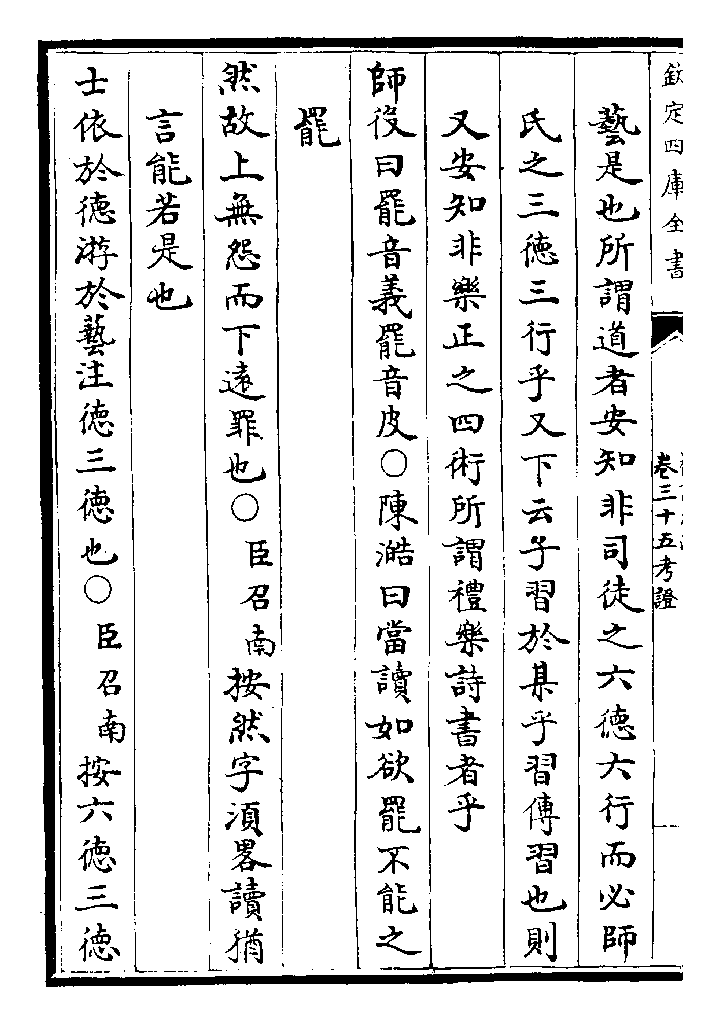 欽定四庫全書
卷三十五考證
藝是也所謂道者安知非司徒之六德六行而必師
氏之三德三行乎又下云子習於某乎習傳習也則
又安知非樂正之四術所謂禮樂詩書者乎
師役曰罷音義罷音皮○陳澔曰當讀如欲罷不能之
罷
然故上無怨而下遠罪也○臣召南按然字須畧讀猶
言能若是也
士依於德游於藝注德三德也○臣召南按六德三德